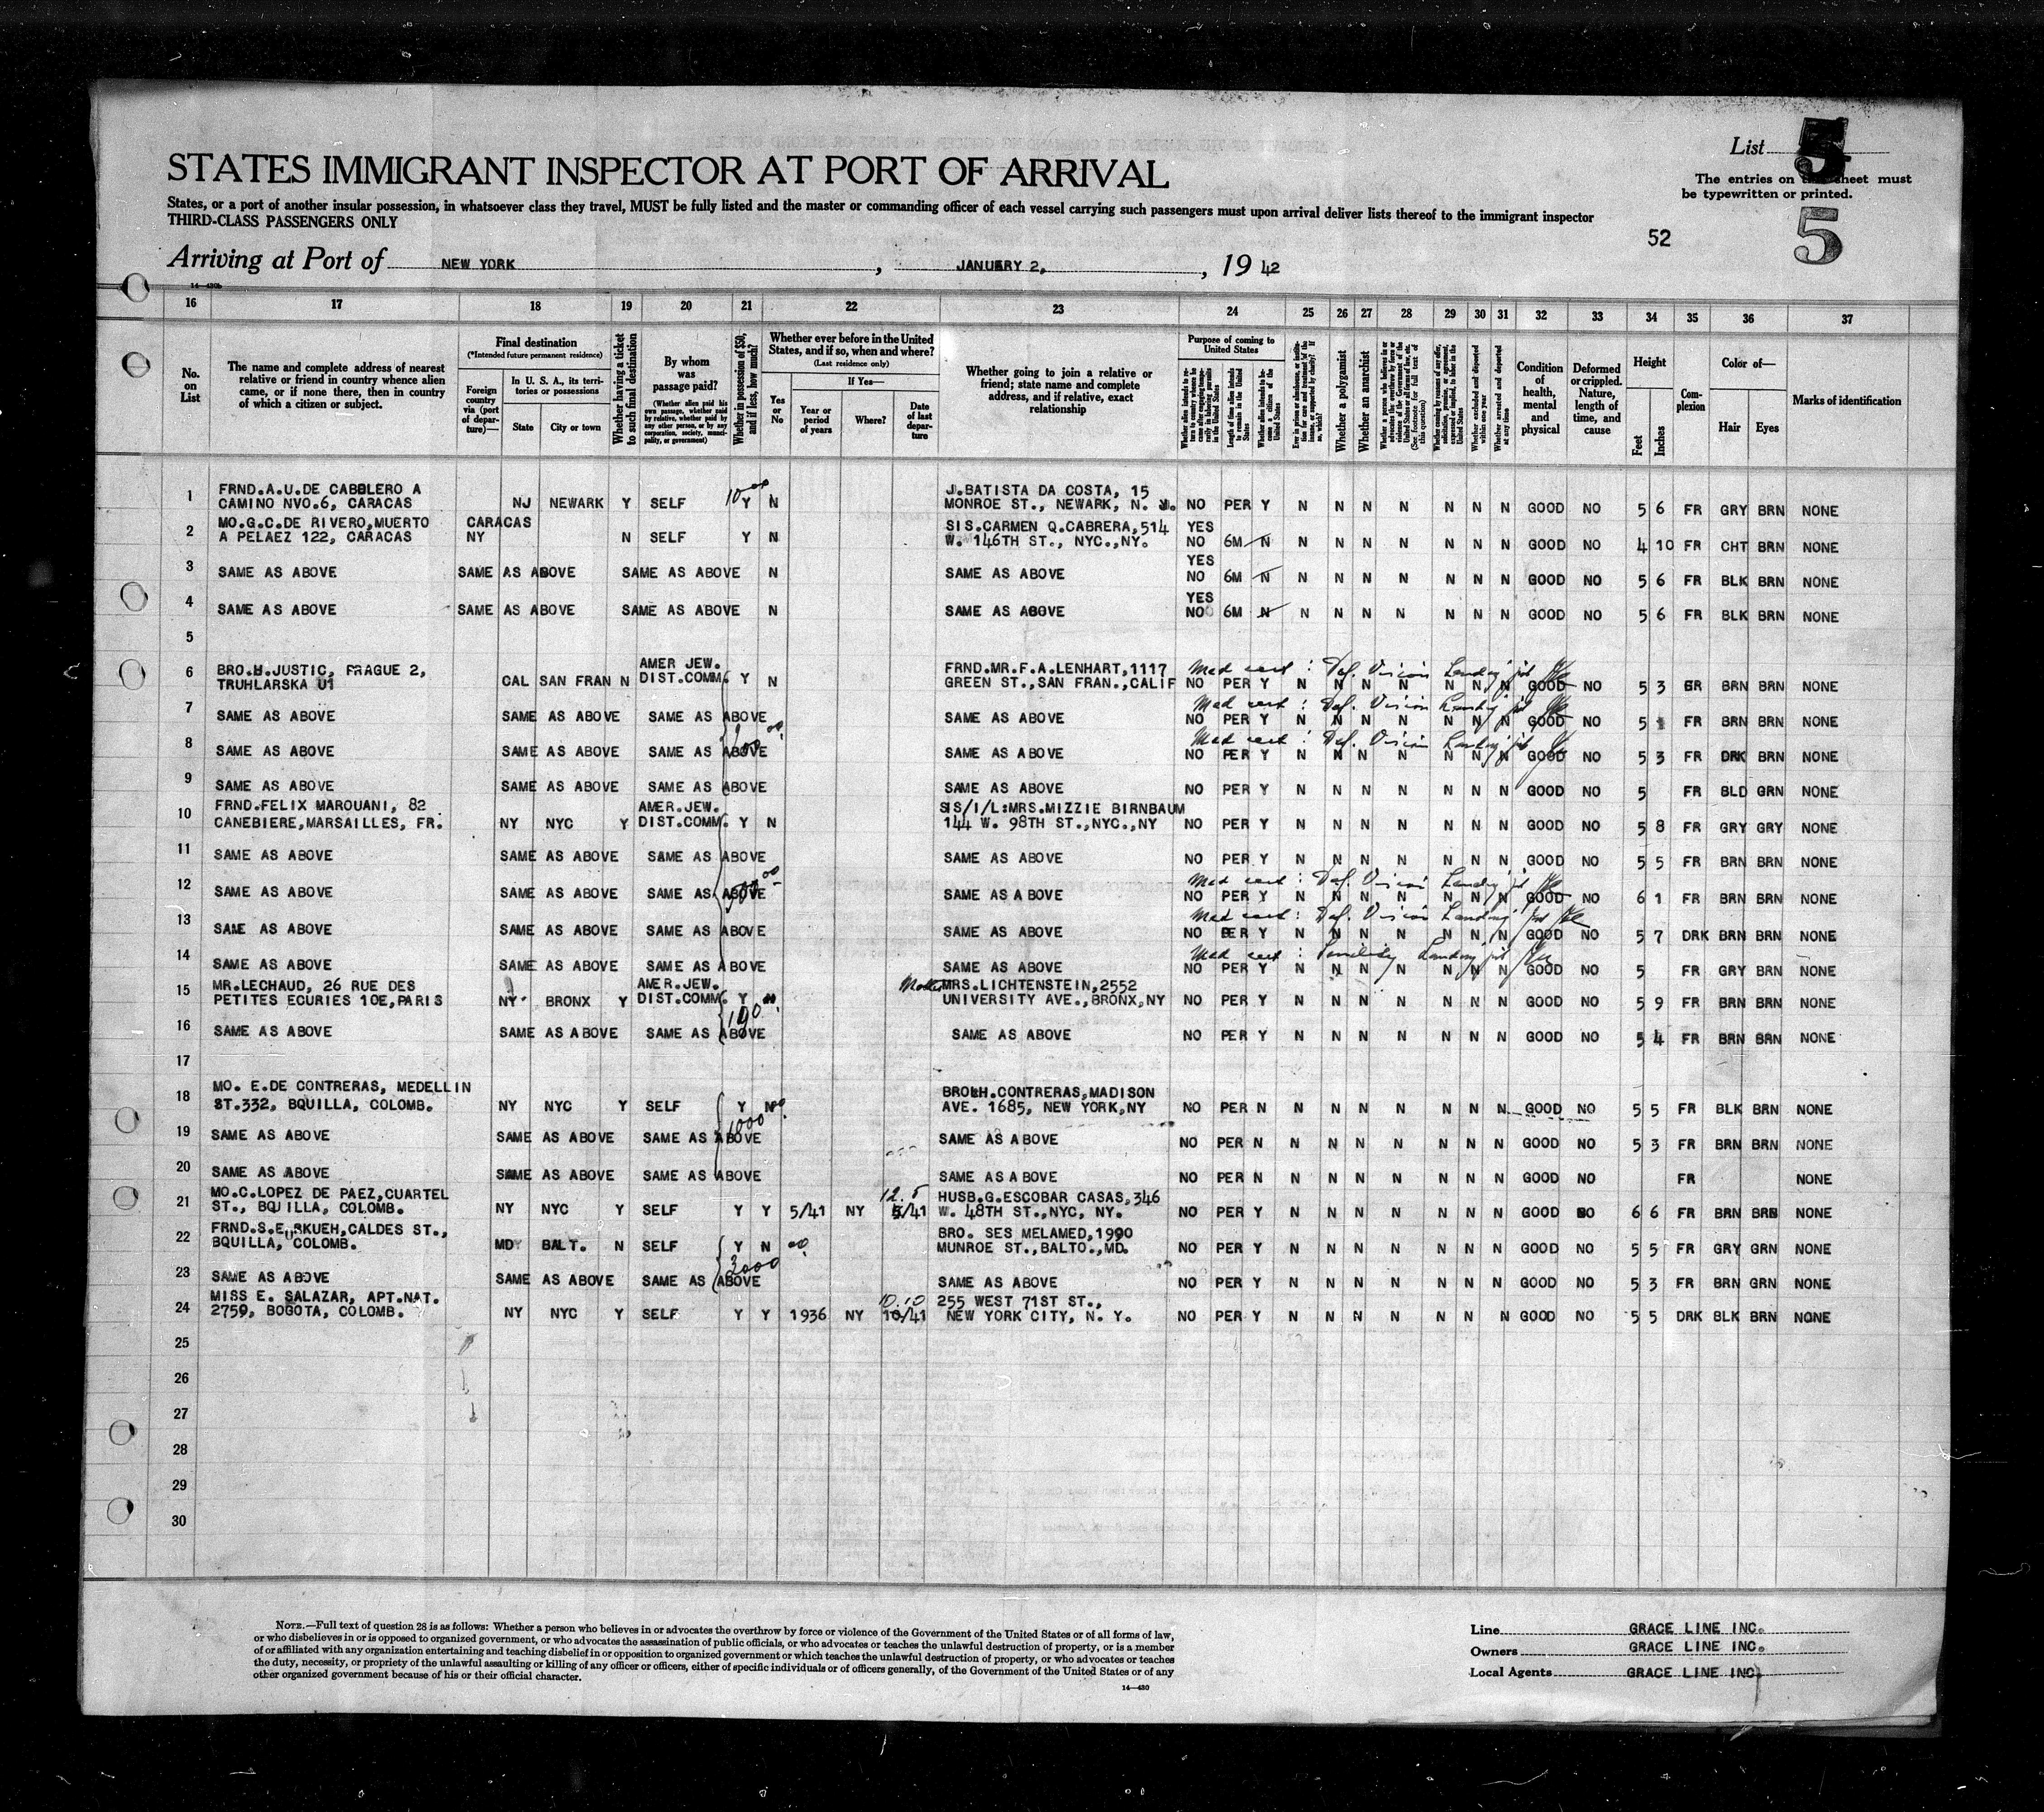 List 5
STATES IMMIGRANT INSPECTOR AT PORT OF ARRIVAL
The entries on this sheet must
be typewritten or printed.
States, or a port of another insular possession, in whatsoever class they travel, MUST be fully listed and the master or commanding officer of each vessel carrying such passengers must upon arrival deliver lists thereof to the immigrant inspector
THIRD-CLASS PASSENGERS ONLY
52
5
Arriving at Port of NEW YORK, JANUARY 2, 1942
14—430b
16 17 18 19 20 21 22 23 24 25 26 27 28 29 30 31 32 33 34 35 36 37
No. on List
The name and complete address of nearest relative or friend in country whence alien came, or if none there, then in country of which a citizen or subject.
Final destination
(*Intended future permanent residence)
Foreign country via (port of departure)—
In U. S. A., its territories or possessions
State
City or town
Whether having a ticket to such final destination
By whom was passage paid?
(Whether alien paid his own passage, whether paid by relative, whether paid by any other person, or by any corporation, society, municipality, or government)
Whether in possession of $50, and if less, how much?
Whether ever before in the United States, and if so, when and where?
(Last residence only)
Yes or No
If Yes—
Year or period of years
Where?
Date of last departure
Whether going to join a relative or friend; state name and complete address, and if relative, exact relationship
Purpose of coming to United States
Length of time alien intends to remain in the United States
Whether alien intends to become a citizen of the United States
Whether a polygamist
Whether an anarchist
(See footnote for full text of this question)
Whether excluded and deported within one year
Whether arrested and deported at any time
Condition of health, mental and physical
Deformed or crippled. Nature, length of time, and cause
Height
Feet
Inches
Complexion
Color of—
Hair
Eyes
Marks of identification
1 FRND.A.U.DE CABOLERO A J.BATISTA DA COSTA, 15
CAMINO NVO.6, CARACAS NJ NEWARK Y SELF 10 Y N MONROE ST., NEWARK, N. J. NO PER Y N N N N N N N GOOD NO 5 6 FR GRY BRN NONE
2 MO.G.C.DE RIVERO,MUERTO CARACAS SIS.CARMEN Q.CABRERA,514 YES
A PELAEZ 122, CARACAS NY N SELF Y N W. 146TH ST., NYC.,NY. NO 6M N N N N N N N N GOOD NO 4 10 FR CHT BRN NONE
YES
3 SAME AS ABOVE SAME AS ABOVE SAME AS ABOVE N SAME AS ABOVE NO 6M N N N N N N N N GOOD NO 5 6 FR BLK BRN NONE
YES
4 SAME AS ABOVE SAME AS ABOVE SAME AS ABOVE N SAME AS ABOVE NO 6M N N N N N N N N GOOD NO 5 6 FR BLK BRN NONE
5
6 BRO.H.JUSTIC, PRAGUE 2, AMER JEW. FRND.MR.F.A.LENHART,1117 Med cert : Def. Vision
TRUHLARSKA U1 CAL SAN FRAN N DIST.COMM. Y N GREEN ST.,SAN FRAN.,CALIF NO PER Y N N N N N N N GOOD NO 5 3 BRN BRN NONE
Med cert : Def. Vision
7 SAME AS ABOVE SAME AS ABOVE SAME AS ABOVE SAME AS ABOVE NO PER Y N N N N N N N GOOD NO 5 FR BRN BRN NONE
Med cert : Def. Vision
8 SAME AS ABOVE SAME AS ABOVE SAME AS ABOVE SAME AS ABOVE NO PER Y N N N N N N N GOOD NO 5 3 FR DRK BRN NONE
9 SAME AS ABOVE SAME AS ABOVE SAME AS ABOVE SAME AS ABOVE NO PER Y N N N N N N N GOOD NO 5 FR BLD GRN NONE
10 FRND.FELIX MAROUANI, 82 AMER.JEW. SIS/I/L:MRS.MIZZIE BIRNBAUM
CANEBIERE,MARSAILLES, FR. NY NYC Y DIST.COMM. Y N 144 W. 98TH ST.,NYC.,NY NO PER Y N N N N N N N GOOD NO 5 8 FR GRY GRY NONE
11 SAME AS ABOVE SAME AS ABOVE SAME AS ABOVE SAME AS ABOVE NO PER Y N N N N N N N GOOD NO 5 5 FR BRN BRN NONE
Med cert : Def. Vision
12 SAME AS ABOVE SAME AS ABOVE SAME AS ABOVE SAME AS ABOVE NO PER Y N N N N N N N GOOD NO 6 1 FR BRN BRN NONE
Med cert : Def. Vision
13 SAME AS ABOVE SAME AS ABOVE SAME AS ABOVE SAME AS ABOVE NO PER Y N N N N N N N GOOD NO 5 7 DRK BRN BRN NONE
Med cert : Senility
14 SAME AS ABOVE SAME AS ABOVE SAME AS ABOVE SAME AS ABOVE NO PER Y N N N N N N N GOOD NO 5 FR GRY BRN NONE
15 MR.LECHAUD, 26 RUE DES AMER.JEW. Mother MRS.LICHTENSTEIN,2552
PETITES ECURIES 10E,PARIS NY BRONX Y DIST.COMM. Y UNIVERSITY AVE.,BRONX,NY NO PER Y N N N N N N N GOOD NO 5 9 FR BRN BRN NONE
16 SAME AS ABOVE SAME AS ABOVE SAME AS ABOVE SAME AS ABOVE NO PER Y N N N N N N N GOOD NO 5 4 FR BRN BRN NONE
17
18 MO. E.DE CONTRERAS, MEDELLIN BRO.H.CONTRERAS,MADISON
ST.332, BQUILLA, COLOMB. NY NYC Y SELF Y N AVE. 1685, NEW YORK,NY NO PER N N N N N N N N GOOD NO 5 5 FR BLK BRN NONE
1000
19 SAME AS ABOVE SAME AS ABOVE SAME AS ABOVE SAME AS ABOVE NO PER N N N N N N N N GOOD NO 5 3 FR BRN BRN NONE
20 SAME AS ABOVE SAME AS ABOVE SAME AS ABOVE SAME AS ABOVE NO PER N N N N N N N N GOOD NO FR NONE
21 MO.C.LOPEZ DE PAEZ,CUARTEL 12.5 HUSB.G.ESCOBAR CASAS,346
ST., BQUILLA, COLOMB. NY NYC Y SELF Y Y 5/41 NY 5/41 W. 48TH ST.,NYC, NY. NO PER Y N N N N N N N GOOD NO 6 6 FR BRN BRN NONE
22 FRND.S.E.URKUEH,CALDES ST., BRO. SES MELAMED,1990
BQUILLA, COLOMB. MD BALT. N SELF Y N MUNROE ST.,BALTO.,MD. NO PER Y N N N N N N N GOOD NO 5 5 FR GRY GRN NONE
3000
23 SAME AS ABOVE SAME AS ABOVE SAME AS ABOVE SAME AS ABOVE NO PER Y N N N N N N N GOOD NO 5 3 FR BRN GRN NONE
24 MISS E. SALAZAR, APT.NAT. 10.10 255 WEST 71ST ST.,
2759, BOGOTA, COLOMB. NY NYC Y SELF Y Y 1936 NY 10/41 NEW YORK CITY, N. Y. NO PER Y N N N N N N N GOOD NO 5 5 DRK BLK BRN NONE
25
26
27
28
29
30
NOTE.—Full text of question 28 is as follows: Whether a person who believes in or advocates the overthrow by force or violence of the Government of the United States or of all forms of law,
or who disbelieves in or is opposed to organized government, or who advocates the assassination of public officials, or who advocates or teaches the unlawful destruction of property, or is a member
of or affiliated with any organization entertaining and teaching disbelief in or opposition to organized government or which teaches the unlawful destruction of property, or who advocates or teaches
the duty, necessity, or propriety of the unlawful assaulting or killing of any officer or officers, either of specific individuals or of officers generally, of the Government of the United States or of any
other organized government because of his or their official character.
14—430
Line GRACE LINE INC.
Owners GRACE LINE INC.
Local Agents GRACE LINE INC.